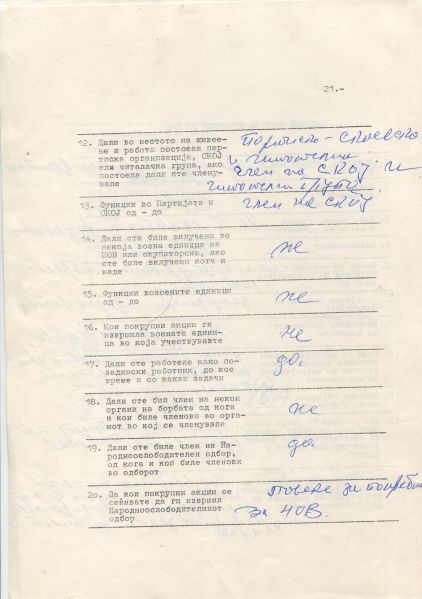 21.-
12. Дали во местото на живее-
ње и работа постоела пар-
тиска организација, СКОЈ
или читалачка група, ако
постоела дали сте члену-
вале
Партиско - скоевска
и читателна
член на СКОЈ и
читателни групи
13. Функции во Партијата и
СКОЈ од - до
член на СКОЈ.
14. Дали сте биле вклучени во
некоја воена единица на
НОВ или окупаторска, ако
сте биле вклучени кога и
каде
не
15. Функции вовоените единици
од - до
не
16. Кои покрупни акции ги
извршила воената едини-
ца во која учествувавте
не
17. Дали сте работеле како по-
задински работник, до кое
време и со какви задачи
да.
18. Дали сте бил член на некои
органи на борбата од кога
и кои биле членови во орга-
мот во кој се членувале
не
19. Дали сте биле член на На-
родноослободителен одбор,
од кога и кои биле членови
во одборот
да.
20. За кои покрупни акции се
сеќавате да ги извршил
Народноослободителниот
одбор
повеќе за потреби
за НОВ.